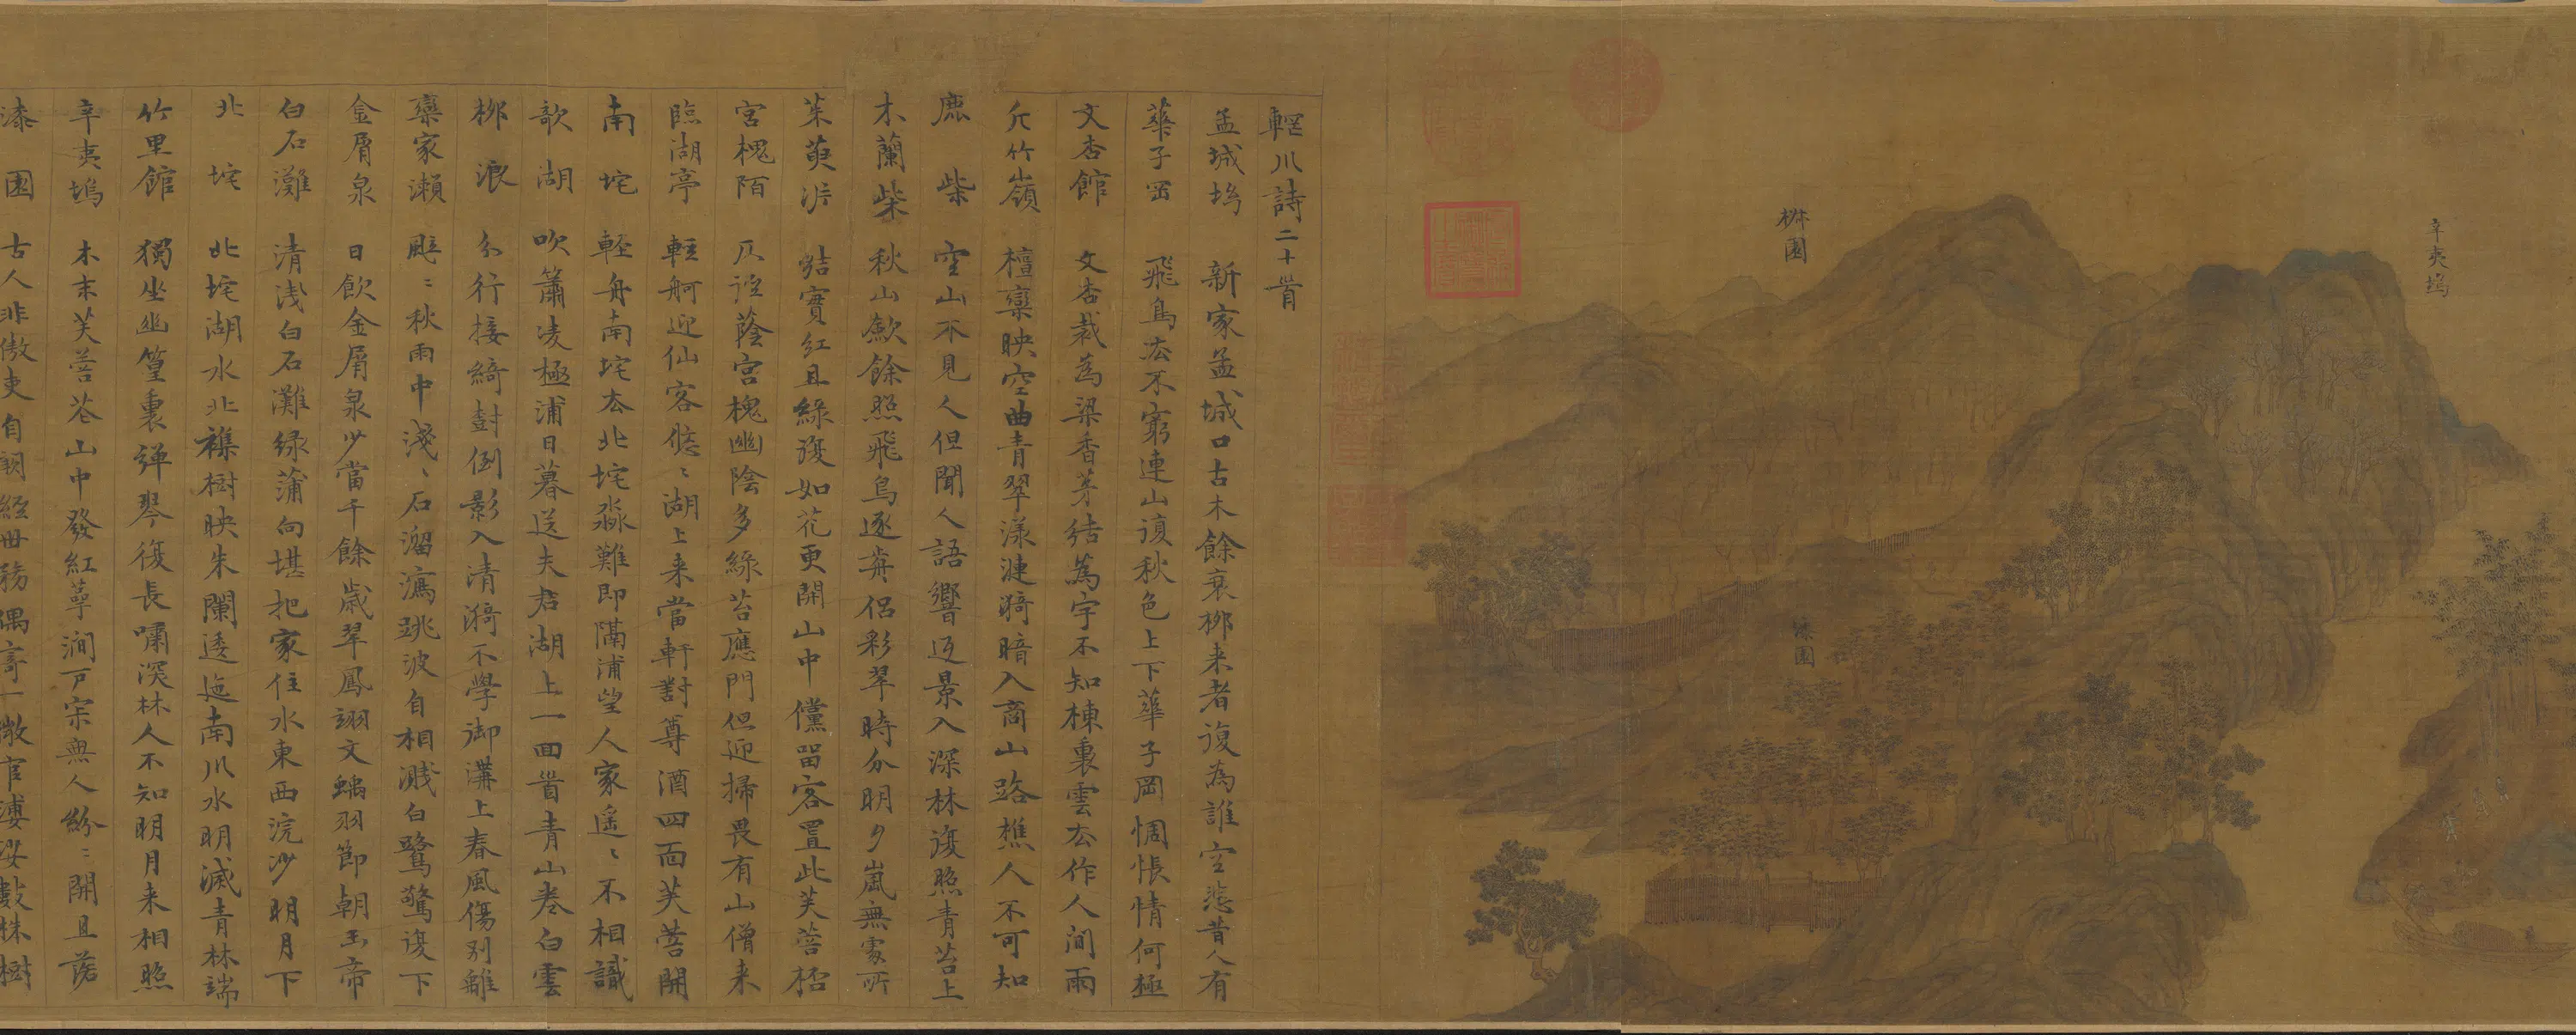 辛夷塢
椒園
漆園
輞川詩二十首
孟城坳 新家孟城口古木餘衰柳来者復為誰空悲昔人有
華子岡 飛鳥去不窮連山復秋色上下華子岡惆悵情何極
文杏館 文杏裁為梁香茅結為宇不知棟裏雲去作人間雨
斤竹嶺 檀欒映空曲青翠漾漣漪暗入商山路樵人不可知
鹿柴 空山不見人但聞人語響返景入深林復照青苔上
木蘭柴 秋山斂餘照飛鳥逐前侶彩翠時分明夕嵐無處所
茱萸沜 結實紅且綠復如花更開山中儻留客置此芙蓉桮
宮槐陌 仄逕蔭宮槐幽陰多綠苔應門但迎掃畏有山僧来
臨湖亭 輕舸迎仙客悠〻湖上来當軒對尊酒四面芙蓉開
南垞 輕舟南垞去北垞淼難即隔浦望人家遥〻不相識
欹湖 吹簫凌極浦日暮送夫君湖上一回首青山卷白雲
柳浪 分行接綺樹倒影入清漪不學御溝上春風傷別離
欒家瀨 颼〻秋雨中淺〻石溜瀉跳波自相濺白鷺驚復下
金屑泉 日飲金屑泉少當千餘歲翠鳳翊文螭羽節朝玉帝
白石灘 清浅白石灘綠蒲向堪把家住水東西浣沙明月下
北垞 北垞湖水北襍樹映朱闌逶迤南川水明滅青林端
竹里館 獨坐幽篁裏弹琴復長嘯深林人不知明月来相照
辛夷塢 木末芙蓉花山中發紅萼澗戶寂無人紛〻開且落
漆園 古人非傲吏自闕經世務偶寄一微官婆娑數株樹